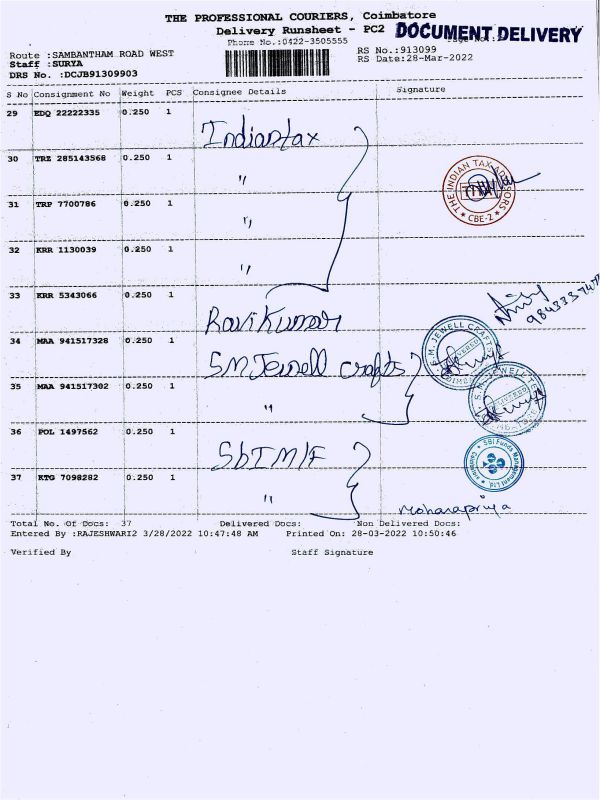 THE PROFESSIONAL COURIERS, Coimbatore
Delivery Runsheet - PC2
DOCUMENT DELIVERY
Phone No.:0422-3505555
Route :SAMBANTHAM ROAD WEST
RS No.:913099
Staff :SURYA
RS Date:28-Mar-2022
DRS No. :DCJB91309903
S No Consignment No Weight PCS Consignee Details Signature
29 EDQ 22222335 0.250 1 Indiantax
30 TRZ 285143568 0.250 1 "
THE INDIAN TAX ADVISORS
★ CBE-2 ★
31 TRP 7700786 0.250 1 "
32 KRR 1130039 0.250 1 "
33 KRR 5343066 0.250 1 Ravi Kumar
34 MAA 941517328 0.250 1 SM Jewell crafts
S.M. JEWELL CRAFTS
35 MAA 941517302 0.250 1 "
36 POL 1497562 0.250 1 SBI M/F
SBI Funds Management Ltd
37 KTG 7098282 0.250 1 "
Mohanapriya
Total No. Of Docs: 37 Delivered Docs: Non Delivered Docs:
Entered By :RAJESHWARI2 3/28/2022 10:47:48 AM Printed On: 28-03-2022 10:50:46
Verified By Staff Signature